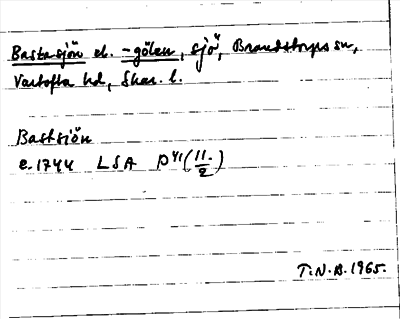 Bastasjön el. -gölen, sjö, Brandstorps sn,
Vartofta hd, Skar. l.
Bastsiön
e. 1744 LSA P41 (11/2)
T.N.B. 1965.